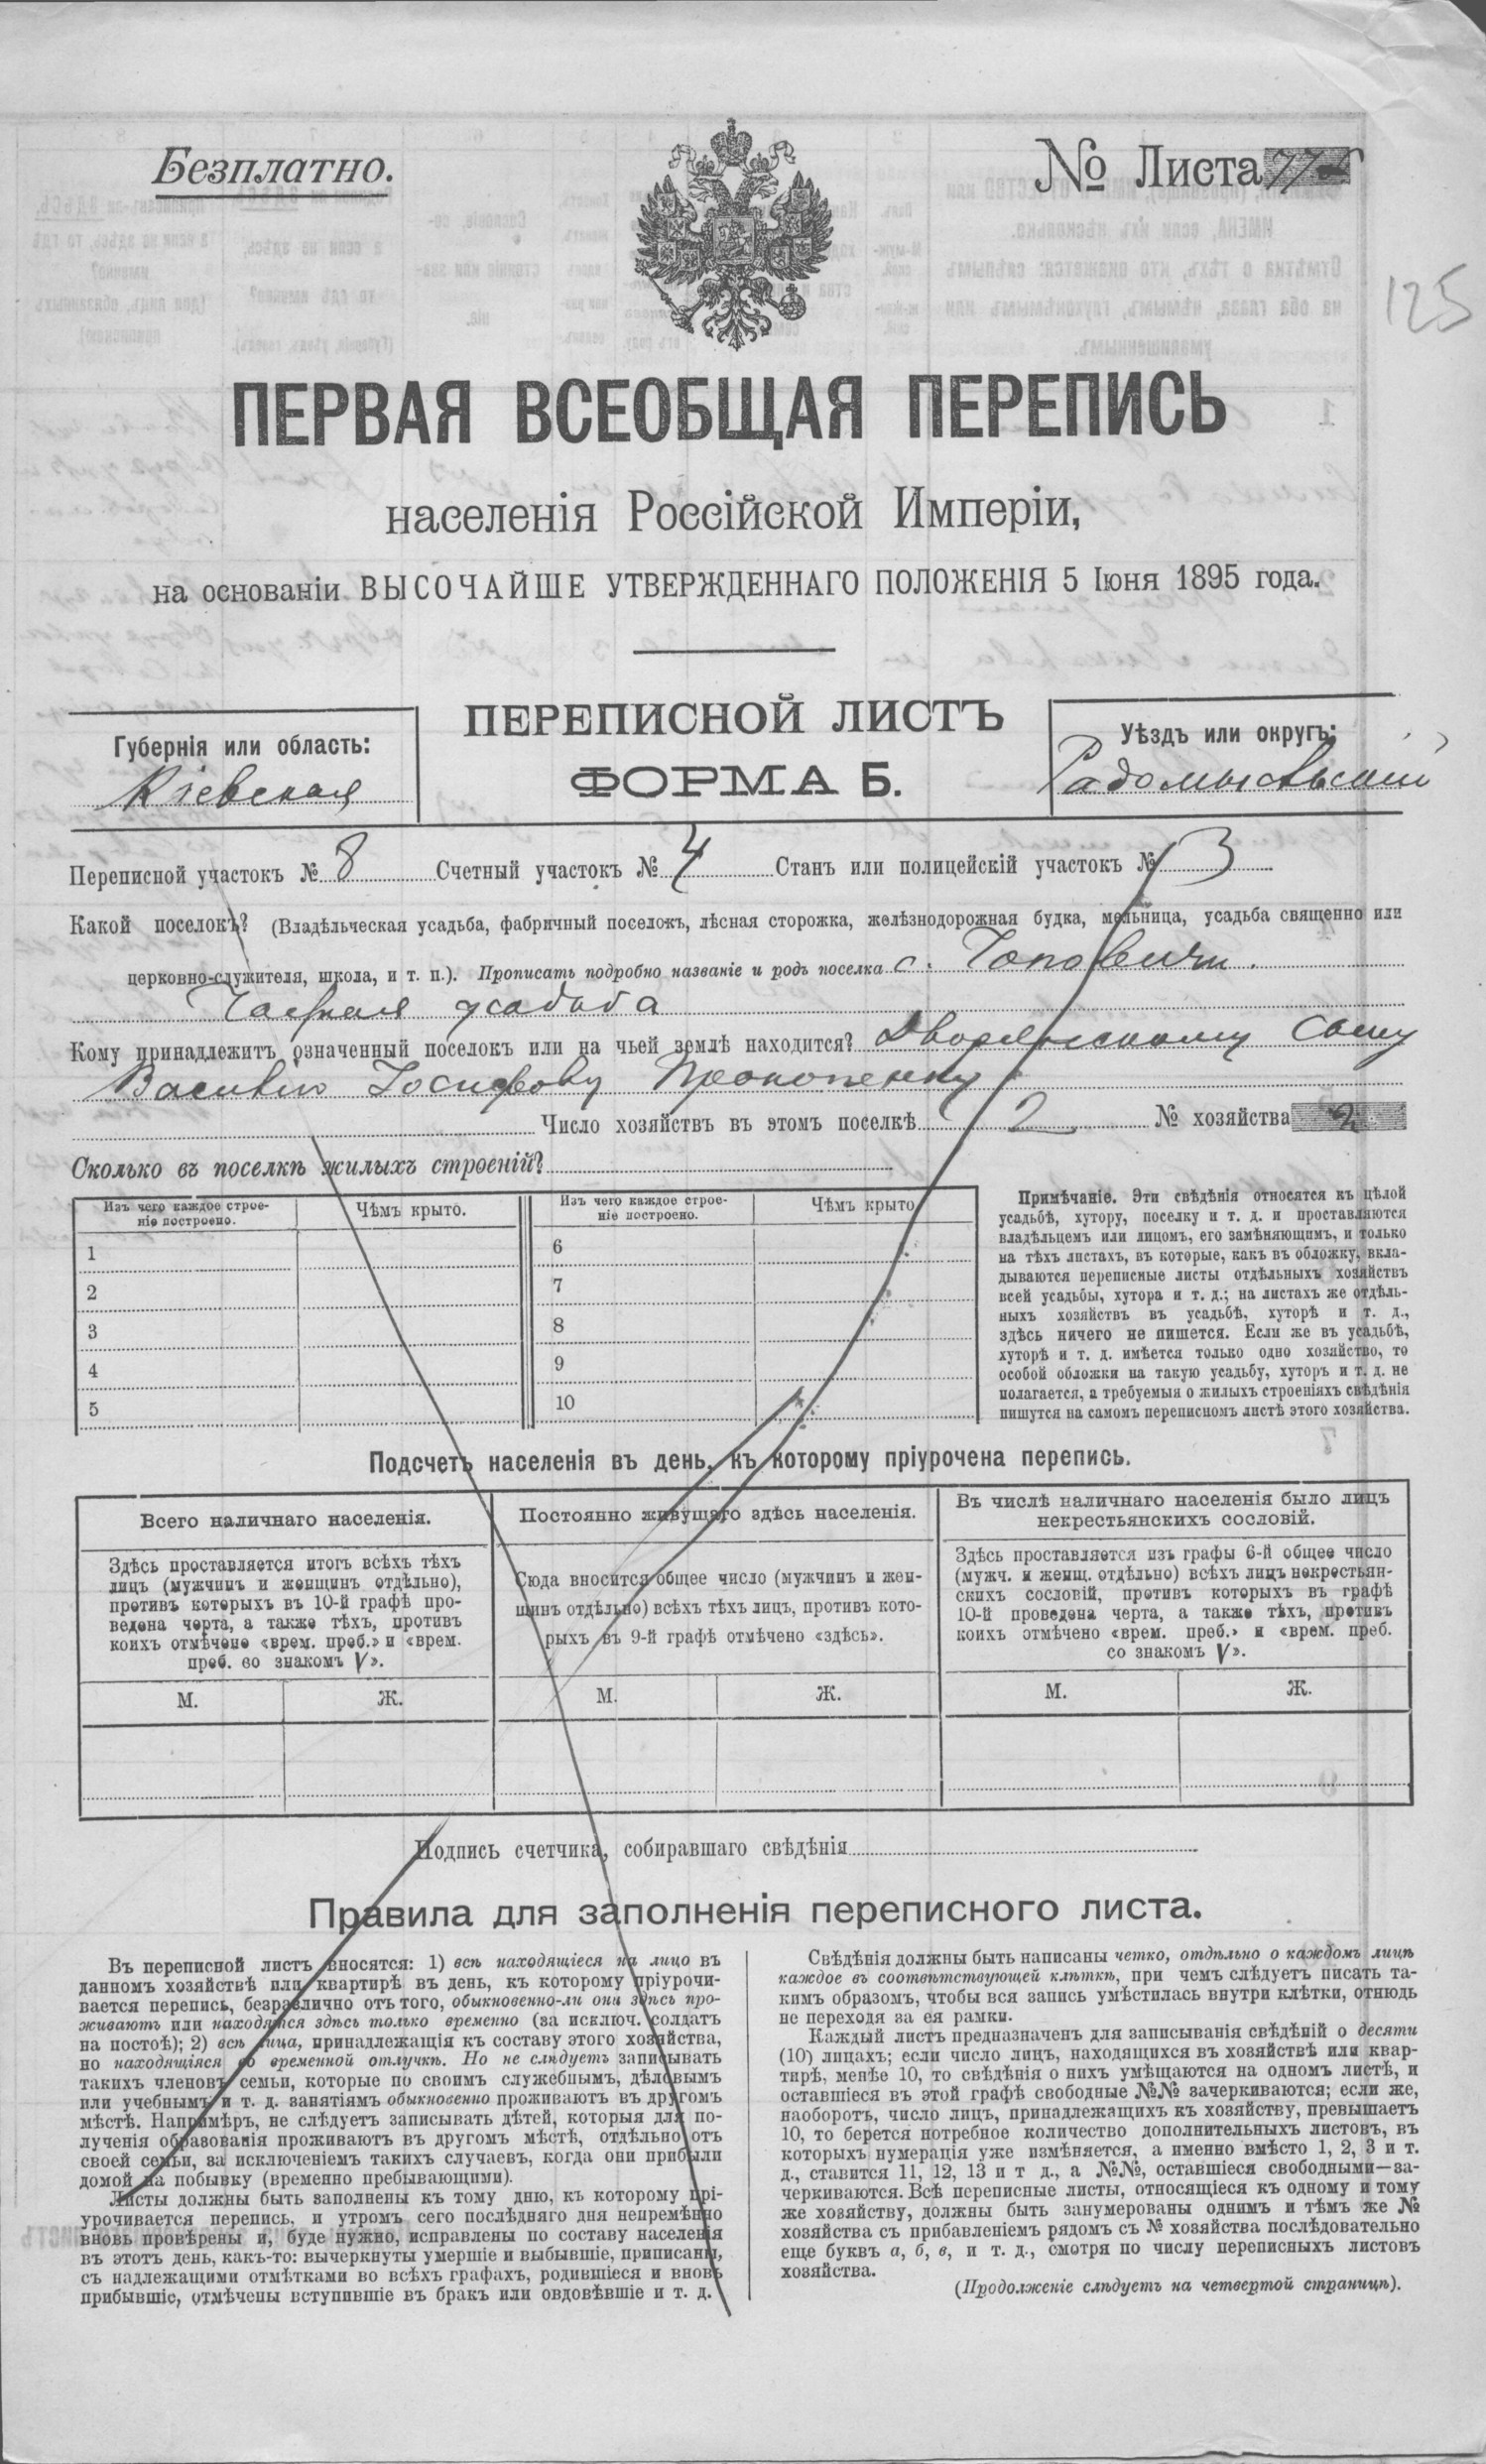 Безплатно.
№ Листа 77
125
ПЕРВАЯ ВСЕОБЩАЯ ПЕРЕПИСЬ
населенія Россійской Имперіи,
на основаніи ВЫСОЧАЙШЕ УТВЕРЖДЕННАГО ПОЛОЖЕНІЯ 5 Іюня 1895 года.
ПЕРЕПИСНОЙ ЛИСТЪ
ФОРМА Б.
Губернія или область:
Кіевская
Уѣздъ или округъ:
Радомысльскій
Переписной участокъ № 8 Счетный участокъ № 4 Станъ или полицейскій участокъ № 3
Какой поселокъ? (Владѣльческая усадьба, фабричный поселокъ, лѣсная сторожка, желѣзнодорожная будка, мельница, усадьба священно или
церковно-служителя, школа, и т. п.). Прописать подробно названіе и родъ поселка с.
усадьба
Кому принадлежитъ означенный поселокъ или на чьей землѣ находится? Дворянскому сыну
Василію Іосифову Прокопенку
Число хозяйствъ въ этомъ поселкѣ 2 № хозяйства 2
Сколько въ поселкѣ жилыхъ строеній?
Изъ чего каждое строе-
ніе построено.
Чѣмъ крыто.
Изъ чего каждое строе-
ніе построено.
Чѣмъ крыто
1 6
2 7
3 8
4 9
5 10
Примѣчаніе. Эти свѣдѣнія относятся къ цѣлой
усадьбѣ, хутору, поселку и т. д. и проставляются
владѣльцемъ или лицомъ, его замѣняющимъ, и только
на тѣхъ листахъ, въ которые, какъ въ обложку, вкла-
дываются переписные листы отдѣльныхъ хозяйствъ
всей усадьбы, хутора и т. д.; на листахъ же отдѣль-
ныхъ хозяйствъ въ усадьбѣ, хуторѣ и т. д.,
здѣсь ничего не пишется. Если же въ усадьбѣ,
хуторѣ и т. д. имѣется только одно хозяйство, то
особой обложки на такую усадьбу, хуторъ и т. д. не
полагается, а требуемыя о жилыхъ строеніяхъ свѣдѣнія
пишутся на самомъ переписномъ листѣ этого хозяйства.
Подсчетъ населенія въ день, къ которому пріурочена перепись.
Всего наличнаго населенія.
Здѣсь проставляется итогъ всѣхъ тѣхъ
лицъ (мужчинъ и женщинъ отдѣльно),
противъ которыхъ въ 10-й графѣ про-
ведена черта, а также тѣхъ, противъ
коихъ отмѣчено «врем. преб.» и «врем.
преб. со знакомъ V».
М. Ж.
Постоянно живущаго здѣсь населенія.
Сюда вносится общее число (мужчинъ и жен-
щинъ отдѣльно) всѣхъ тѣхъ лицъ, противъ кото-
рыхъ въ 9-й графѣ отмѣчено «здѣсь».
М. Ж.
Въ числѣ наличнаго населенія было лицъ
некрестьянскихъ сословій.
Здѣсь проставляется изъ графы 6-й общее число
(мужч. и женщ. отдѣльно) всѣхъ лицъ некрестьян-
скихъ сословій, противъ которыхъ въ графѣ
10-й проведена черта, а также тѣхъ, противъ
коихъ отмѣчено «врем. преб.» и «врем. преб.
со знакомъ V».
М. Ж.
Подпись счетчика, собиравшаго свѣдѣнія
Правила для заполненія переписного листа.
Въ переписной листъ вносятся: 1) всѣ находящіеся на лицо въ
данномъ хозяйствѣ или квартирѣ въ день, къ которому пріурочи-
вается перепись, безразлично отъ того, обыкновенно-ли они здѣсь про-
живаютъ или находятся здѣсь только временно (за исключ. солдатъ
на постоѣ); 2) всѣ лица, принадлежащія къ составу этого хозяйства,
но находящіяся во временной отлучкѣ. Но не слѣдуетъ записывать
такихъ членовъ семьи, которые по своимъ служебнымъ, дѣловымъ
или учебнымъ и т. д. занятіямъ обыкновенно проживаютъ въ другомъ
мѣстѣ. Напримѣръ, не слѣдуетъ записывать дѣтей, которыя для по-
лученія образованія проживаютъ въ другомъ мѣстѣ, отдѣльно отъ
своей семьи, за исключеніемъ такихъ случаевъ, когда они прибыли
домой на побывку (временно пребывающими).
Листы должны быть заполнены къ тому дню, къ которому прі-
урочивается перепись, и утромъ сего послѣдняго дня непремѣнно
вновь провѣрены и, буде нужно, исправлены по составу населенія
въ этотъ день, какъ-то: вычеркнуты умершіе и выбывшіе, приписаны,
съ надлежащими отмѣтками во всѣхъ графахъ, родившіеся и вновь
прибывшіе, отмѣчены вступившіе въ бракъ или овдовѣвшіе и т. д.
Свѣдѣнія должны быть написаны четко, отдѣльно о каждомъ лицѣ
каждое въ соотвѣтствующей клѣткѣ, при чемъ слѣдуетъ писать та-
кимъ образомъ, чтобы вся запись умѣстилась внутри клѣтки, отнюдь
не переходя за ея рамки.
Каждый листъ предназначенъ для записыванія свѣдѣній о десяти
(10) лицахъ; если число лицъ, находящихся въ хозяйствѣ или квар-
тирѣ, менѣе 10, то свѣдѣнія о нихъ умѣщаются на одномъ листѣ, и
оставшіеся въ этой графѣ свободные №№ зачеркиваются; если же,
наоборотъ, число лицъ, принадлежащихъ къ хозяйству, превышаетъ
10, то берется потребное количество дополнительныхъ листовъ, въ
которыхъ нумерація уже измѣняется, а именно вмѣсто 1, 2, 3 и т.
д., ставится 11, 12, 13 и т д., а №№, оставшіеся свободными—за-
черкиваются. Всѣ переписные листы, относящіеся къ одному и тому
же хозяйству, должны быть занумерованы однимъ и тѣмъ же №
хозяйства съ прибавленіемъ рядомъ съ № хозяйства послѣдовательно
еще буквъ а, б, в, и т. д., смотря по числу переписныхъ листовъ
хозяйства.
(Продолженіе слѣдуетъ на четвертой страницѣ).